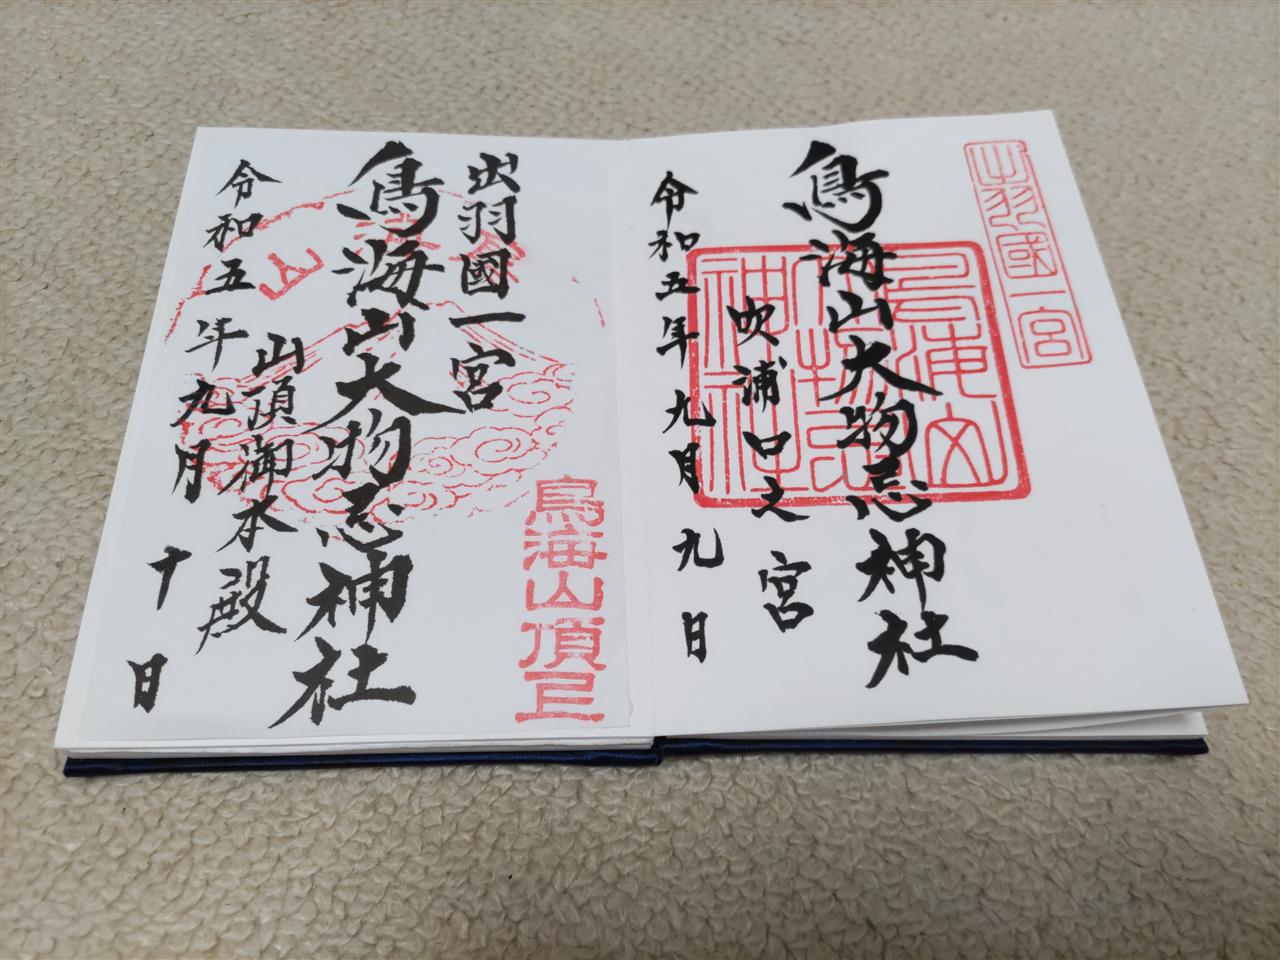 出羽國一宮
鳥海山大物忌神社
鳥海山大物忌神社
吹浦口之宮
令和五年九月九日
鳥海山頂上
出羽國一宮
鳥海山大物忌神社
山頂御本殿
令和五年九月十日